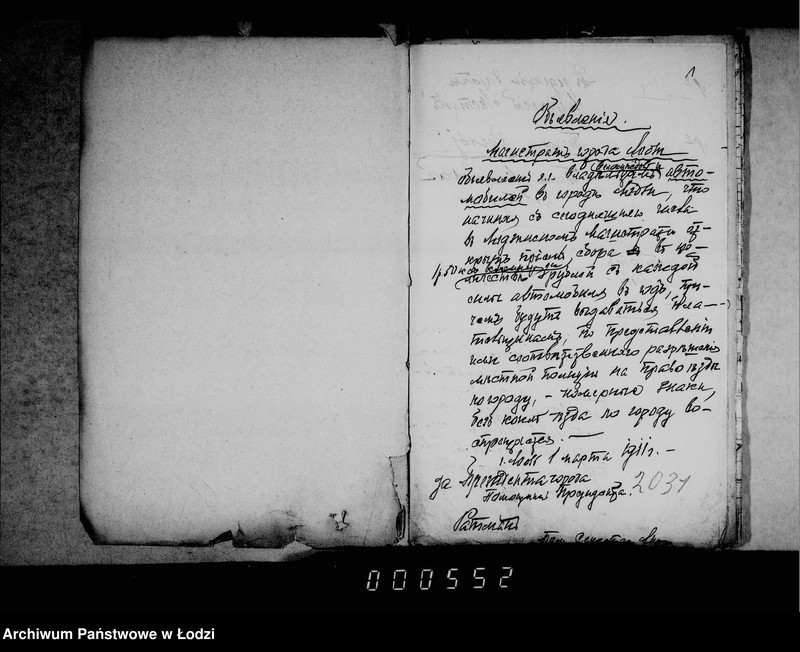 1
Объявленія.
Магистратъ города Лодзи
объявляетъ г.г. владѣльцамъ авто-
мобилей въ городѣ Лодзи, что
начиная съ сегодняшняго числа
въ Лодзинскомъ Магистратѣ от-
крытъ пріемъ сбора въ ко-
рублей съ каждой
силы автомобиля въ годъ, при-
чемъ будутъ выдаваться пла-
тельщикамъ, по представленіи
ими соотвѣтственнаго разрѣшенія
мѣстной полиціи на право ѣзды
по городу, - номерные знаки,
безъ коихъ ѣзда по городу во-
спрещается. —
г. Лодзь 1 марта 1911 г. —
за Президента города
Помощникъ Президента.
2031
Ратманъ
000552
Archiwum Państwowe w Łodzi